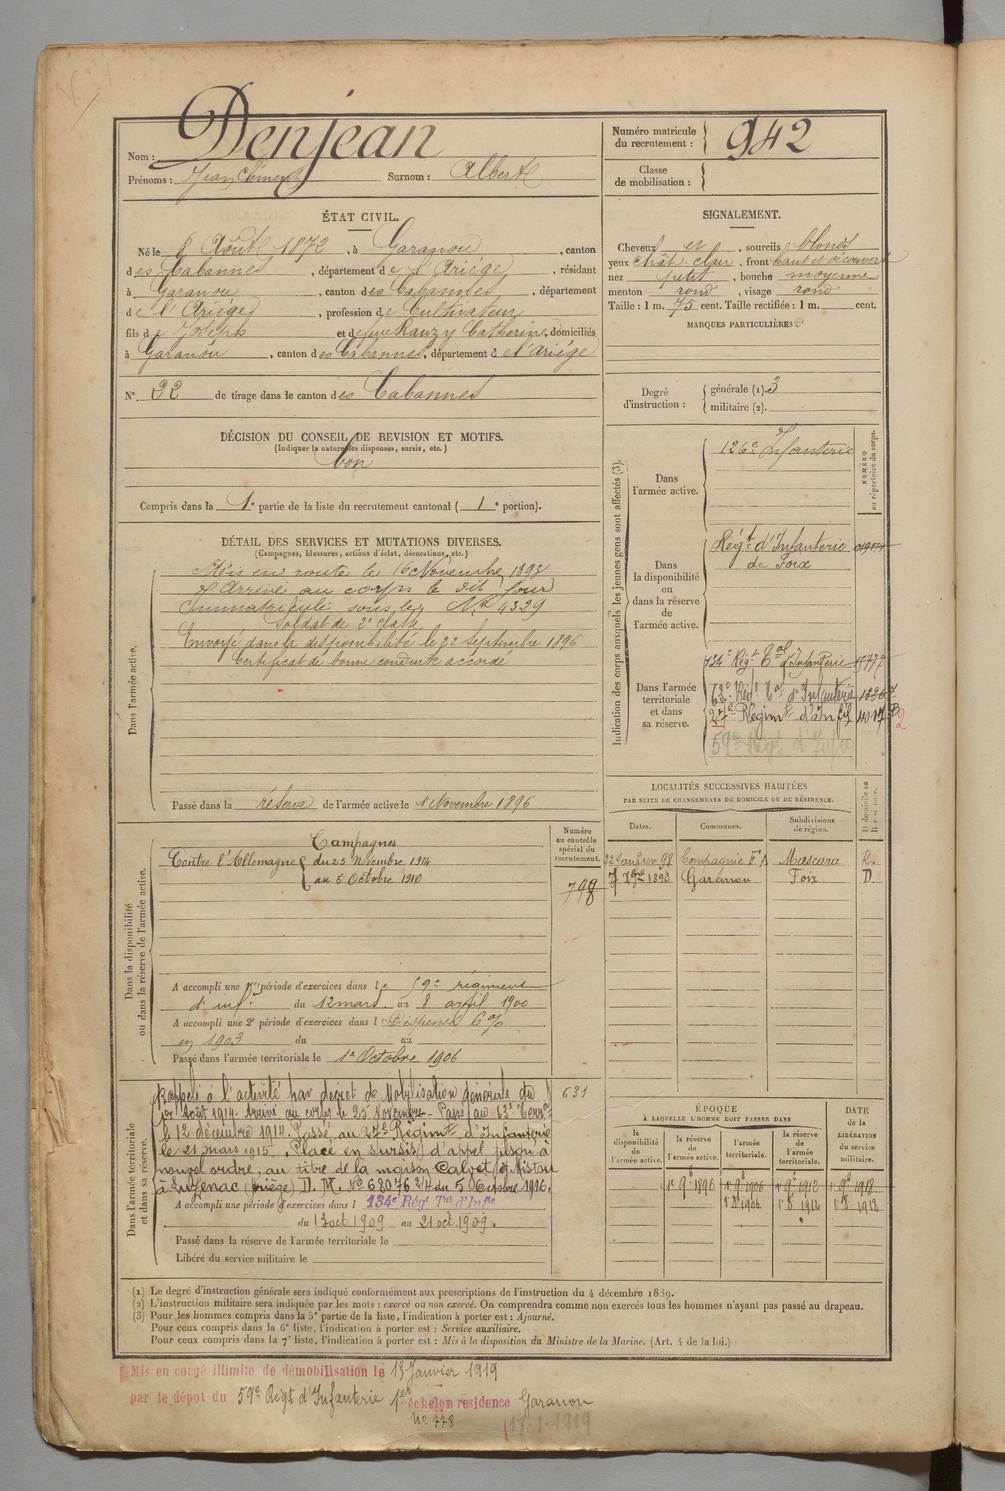 Nom : Denjean
Prénoms : Jean Clément Surnom : Albert
Numéro matricule du recrutement : 942
Classe de mobilisation :
ÉTAT CIVIL.
Né le 8 Août 1872, à Garanou, canton
des Cabannes, département de l'Ariége, résidant
à Garanou, canton des Cabannes, département
de l'Ariége, profession de Cultivateur
fils de Joseph et de feue Rauzy Catherine, domiciliés
à Garanou, canton des Cabannes, département de l'Ariége
N° 22 de tirage dans le canton des Cabannes
DÉCISION DU CONSEIL DE REVISION ET MOTIFS.
(Indiquer la nature des dispenses, sursis, etc.)
bon
Compris dans la 1e partie de la liste du recrutement cantonal ( 1e portion).
SIGNALEMENT.
Cheveux et , sourcils blonds
yeux chât. clair, front haut et découvert
nez petit, bouche moyenne
menton rond, visage rond
Taille : 1 m. 75 cent. Taille rectifiée : 1 m. cent.
MARQUES PARTICULIÈRES
Degré d'instruction : générale (1). 3
militaire (2).
DÉTAIL DES SERVICES ET MUTATIONS DIVERSES.
(Campagnes, blessures, actions d'éclat, décorations, etc.)
Dans l'armée active.
Mis en route le 16 Novembre 1893
Arrivé au corps le dit jour
Immatriculé sous le N° 4329
Soldat de 2e classe
Envoyé dans la disponibilité le 22 Septembre 1896
Certificat de bonne conduite accordé
Passé dans la réserve de l'armée active le 1 Novembre 1896
Indication des corps auxquels les jeunes gens sont affectés (3).
NUMÉRO au répertoire du corps.
Dans l'armée active.
126e Infanterie
Dans la disponibilité ou dans la réserve de l'armée active.
Régt d'Infanterie
de Foix
Dans l'armée territoriale et dans sa réserve.
134e Régt Tal d'Infanterie
63e Régt Tal d'Infanterie
27e Régimt d'Infie
59e Régt d'Infie
LOCALITÉS SUCCESSIVES HABITÉES
PAR SUITE DE CHANGEMENTS DE DOMICILE OU DE RÉSIDENCE.
Dates. Communes. Subdivisions de région. D domicile ou R résidence.
22 Janvier 98 Compagnie F A Mascara R.
7 Xbre 1898 Garanou Foix D.
Dans la disponibilité ou dans la réserve de l'armée active.
Numéro au contrôle spécial du recrutement.
798
Campagnes
Contre l'Allemagne du 25 Novembre 1914
au 5 Octobre 1916
A accompli une 1re période d'exercices dans le 59e régiment
d'infie du 12 mars au 8 avril 1900
A accompli une 2e période d'exercices dans l Dispensé 6%
en 1903 du au
Passé dans l'armée territoriale le 1e Octobre 1906
Dans l'armée territoriale et dans sa réserve.
631
Rappelé à l'activité par décret de Mobilisation générale du
1er Août 1914. Arrivé au corps le 25 Novembre. Passé au 63e Terral
le 12 décembre 1914. Passé au 27e Régimt d'Infanterie
le 21 mars 1915. Placé en sursis d'appel jusqu'à
nouvel ordre, au titre de la maison Calvet et Mistou
à Luzenac (Ariège) D. M. N° 68076 2/4 du 5 Octobre 1916.
A accompli une période d'exercices dans l 134e Régt Tal d'Infie
du 13 oct 1909 au 21 oct 1909.
Passé dans la réserve de l'armée territoriale le
Libéré du service militaire le
ÉPOQUE
À LAQUELLE L'HOMME DOIT PASSER DANS
la disponibilité de l'armée active. la réserve de l'armée active. l'armée territoriale. la réserve de l'armée territoriale. DATE DE LA LIBÉRATION du service militaire.
1r 9e 1896 1r 9e 1906 1r 9e 1912 1r 9e 1918
1r 8e 1906 1r 8e 1912 1r 8e 1918
(1) Le degré d'instruction générale sera indiqué conformément aux prescriptions de l'instruction du 4 décembre 1889.
(2) L'instruction militaire sera indiquée par les mots : exercé ou non exercé. On comprendra comme non exercés tous les hommes n'ayant pas passé au drapeau.
(3) Pour les hommes compris dans la 5e partie de la liste, l'indication à porter est : Ajourné.
Pour ceux compris dans la 6e liste, l'indication à porter est : Service auxiliaire.
Pour ceux compris dans la 7e liste, l'indication à porter est : Mis à la disposition du Ministre de la Marine. (Art. 4 de la loi.)
Mis en congé illimité de démobilisation le 15 Janvier 1919
par le dépôt du 59e Régt d'Infanterie 1er échelon résidence Garanou
No 778
17-1-1919